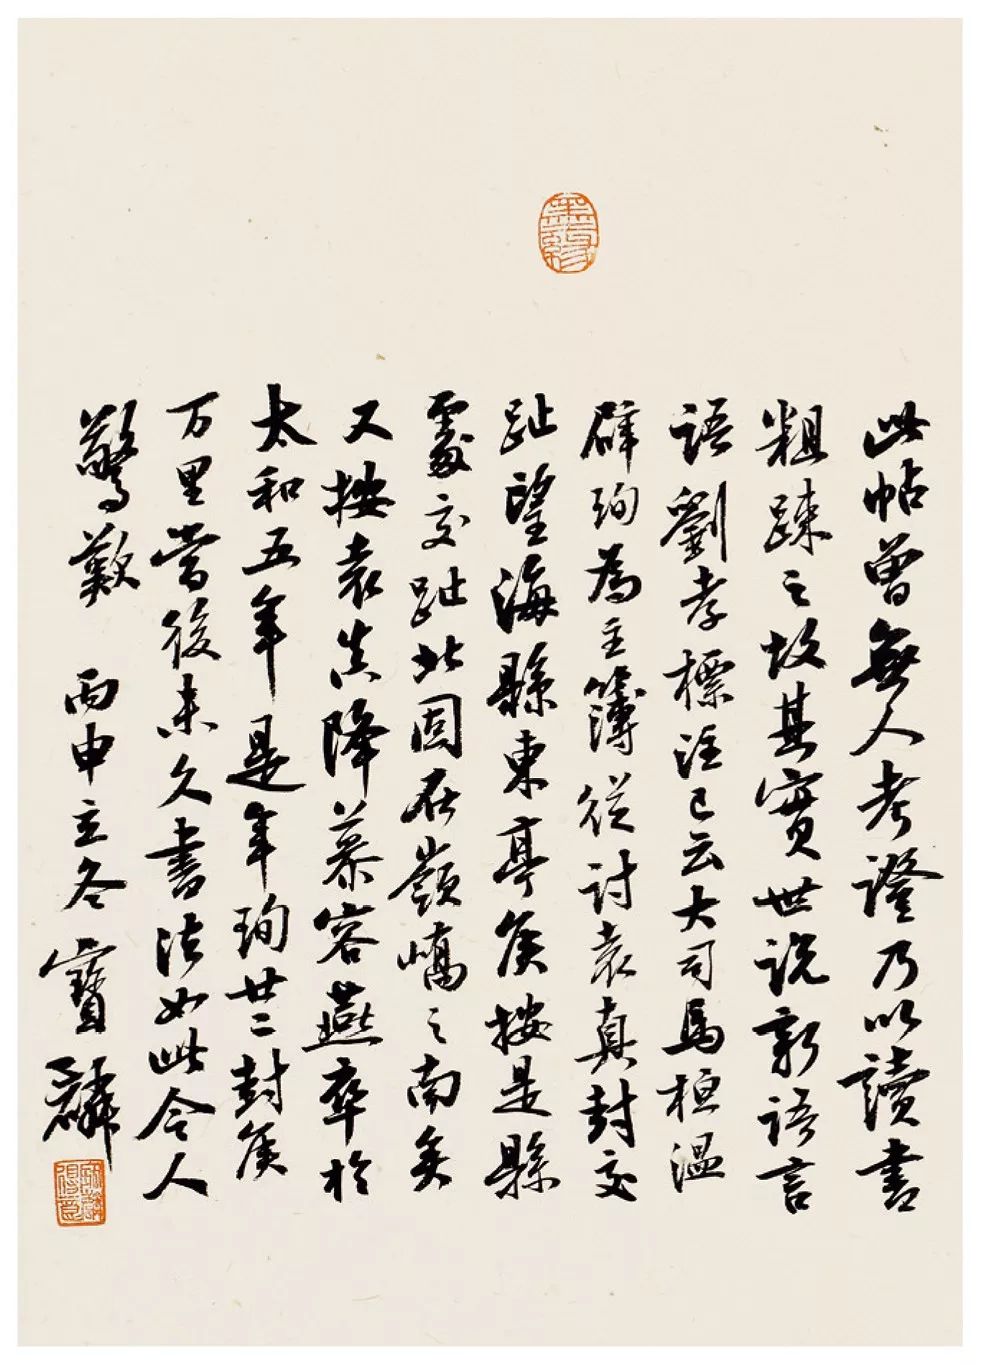 此帖曾無人考證乃以讀書
粗疎之故其實世説新語言
語劉孝標注已云大司馬桓温
辟珣為主簿從討袁真封交
趾望海縣東亭侯按是縣
處交趾北固在嶺嶠之南矣
又按袁真降慕容燕卒於
太和五年是年珣廿二封侯
万里當後未久書法如此令人
驚歎 丙申立冬 寶麟